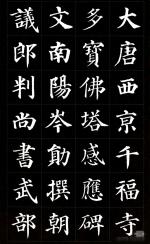 大唐西京千福寺
多寶佛塔感應碑
文南陽岑勛撰朝
議郎判尚書武部